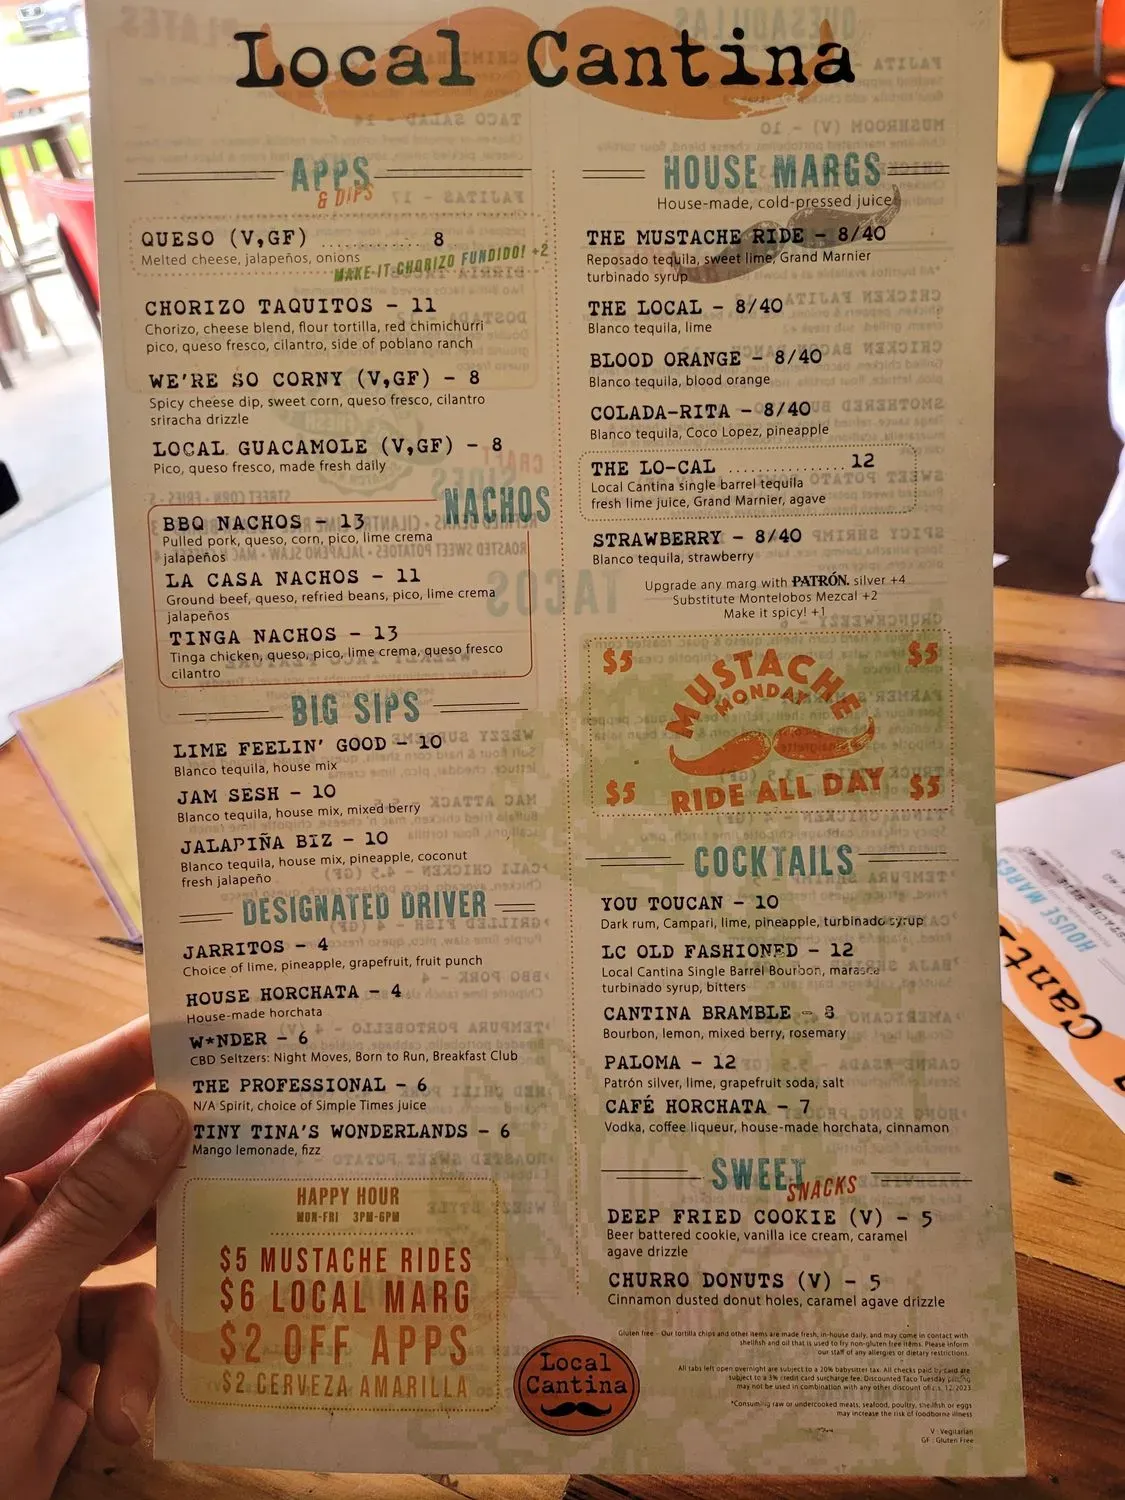 Local Cantina
APPS
& DIPS
QUESO (V,GF) ........... 8
Melted cheese, jalapeños, onions
MAKE IT CHORIZO FUNDIDO! +2
CHORIZO TAQUITOS - 11
Chorizo, cheese blend, flour tortilla, red chimichurri
pico, queso fresco, cilantro, side of poblano ranch
WE'RE SO CORNY (V,GF) - 8
Spicy cheese dip, sweet corn, queso fresco, cilantro
sriracha drizzle
LOCAL GUACAMOLE (V,GF) - 8
Pico, queso fresco, made fresh daily
NACHOS
BBQ NACHOS - 13
Pulled pork, queso, corn, pico, lime crema
jalapeños
LA CASA NACHOS - 11
Ground beef, queso, refried beans, pico, lime crema
jalapeños
TINGA NACHOS - 13
Tinga chicken, queso, pico, lime crema, queso fresco
cilantro
BIG SIPS
LIME FEELIN' GOOD - 10
Blanco tequila, house mix
JAM SESH - 10
Blanco tequila, house mix, mixed berry
JALAPIÑA BIZ - 10
Blanco tequila, house mix, pineapple, coconut
fresh jalapeño
DESIGNATED DRIVER
JARRITOS - 4
Choice of lime, pineapple, grapefruit, fruit punch
HOUSE HORCHATA - 4
House-made horchata
W*NDER - 6
CBD Seltzers: Night Moves, Born to Run, Breakfast Club
THE PROFESSIONAL - 6
N/A Spirit, choice of Simple Times juice
TINY TINA'S WONDERLANDS - 6
Mango lemonade, fizz
HAPPY HOUR
MON-FRI 3PM-6PM
$5 MUSTACHE RIDES
$6 LOCAL MARG
$2 OFF APPS
$2 CERVEZA AMARILLA
HOUSE MARGS
House-made, cold-pressed juice
THE MUSTACHE RIDE - 8/40
Reposado tequila, sweet lime, Grand Marnier
turbinado syrup
THE LOCAL - 8/40
Blanco tequila, lime
BLOOD ORANGE - 8/40
Blanco tequila, blood orange
COLADA-RITA - 8/40
Blanco tequila, Coco Lopez, pineapple
THE LO-CAL ............. 12
Local Cantina single barrel tequila
fresh lime juice, Grand Marnier, agave
STRAWBERRY - 8/40
Blanco tequila, strawberry
Upgrade any marg with PATRÓN. silver +4
Substitute Montelobos Mezcal +2
Make it spicy! +1
$5 $5
MUSTACHE
MONDAY
$5 RIDE ALL DAY $5
COCKTAILS
YOU TOUCAN - 10
Dark rum, Campari, lime, pineapple, turbinado syrup
LC OLD FASHIONED - 12
Local Cantina Single Barrel Bourbon,
turbinado syrup, bitters
CANTINA BRAMBLE - 8
Bourbon, lemon, mixed berry, rosemary
PALOMA - 12
Patrón silver, lime, grapefruit soda, salt
CAFÉ HORCHATA - 7
Vodka, coffee liqueur, house-made horchata, cinnamon
SWEET
SNACKS
DEEP FRIED COOKIE (V) - 5
Beer battered cookie, vanilla ice cream, caramel
agave drizzle
CHURRO DONUTS (V) - 5
Cinnamon dusted donut holes, caramel agave drizzle
Gluten free - Our tortilla chips and other items are made fresh, in-house daily, and may come in contact with
shellfish and oil that is used to fry non-gluten free items. Please inform
our staff of any allergies or dietary restrictions.
All tabs left open overnight are subject to a 20% babysitter tax. All checks paid by card are
subject to a 3% credit card surcharge fee. Discounted Taco Tuesday pricing
may not be used in combination with any other discount offers. 12.2023
*Consuming raw or undercooked meats, seafood, poultry, shellfish or eggs
may increase the risk of foodborne illness
V : Vegitarian
GF : Gluten Free
Local
Cantina
HOUSE MARGS
Cant